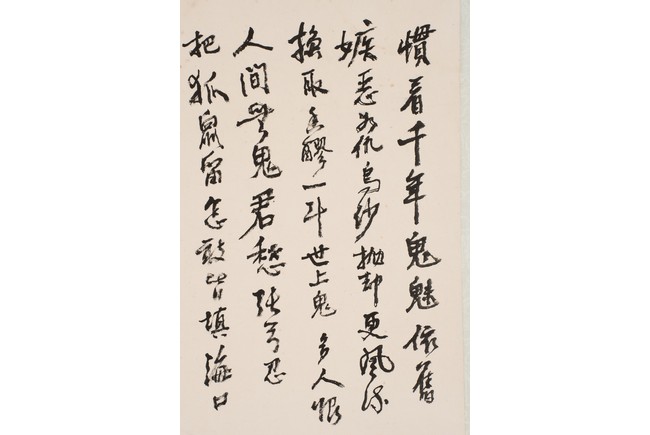 慣看千年鬼魅依舊
嫉惡如仇烏紗拋却更風流
換取香醪一斗世上鬼多人恨
人間無鬼君愁張弓忍
把狐鼠留怎皆填海口